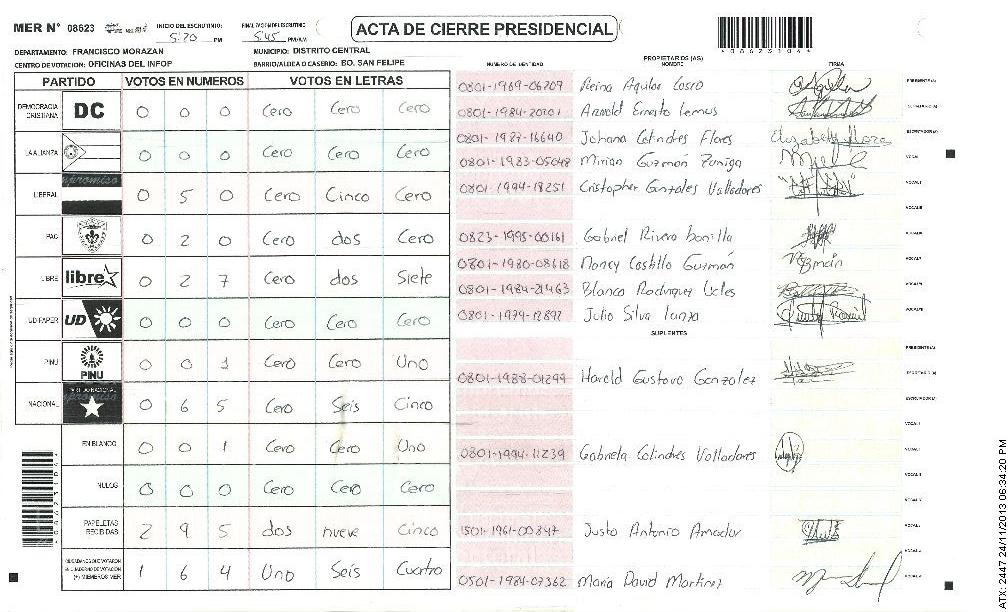 MER N° 08623 INICIO DEL ESCRUTINIO 5:20 PM FINALIZACION DEL ESCRUTINIO 5:45 PM/A.M
ACTA DE CIERRE PRESIDENCIAL
DEPARTAMENTO: FRANCISCO MORAZAN MUNICIPIO: DISTRITO CENTRAL
CENTRO DE VOTACION: OFICINAS DEL INFOP BARRIO/ALDEA O CASERIO: BO. SAN FELIPE
PARTIDO VOTOS EN NUMEROS VOTOS EN LETRAS
DEMOCRACIA CRISTIANA DC 0 0 0 Cero Cero Cero
LA ALIANZA 0 0 0 Cero Cero Cero
LIBERAL 0 5 0 Cero Cinco Cero
PAC 0 2 0 Cero dos Cero
LIBRE libre 0 2 7 Cero dos Siete
UD/FAPER UD 0 0 0 Cero Cero Cero
PINU PINU 0 0 1 Cero Cero Uno
NACIONAL 0 6 5 Cero Seis Cinco
EN BLANCO 0 0 1 Cero Cero Uno
NULOS 0 0 0 Cero Cero Cero
PAPELETAS RECIBIDAS 2 9 5 dos nueve Cinco
CIUDADANOS QUE VOTARON (+) MIEMBROS MER 1 6 4 Uno Seis Cuatro
PROPIETARIOS (AS)
NUMERO DE IDENTIDAD NOMBRE FIRMA
0801-1969-06209 Reina Aguilar PRESIDENTE(A)
0801-1984-20201 Arnold Ernesto Lemus SECRETARIO(A)
0801-1987-16640 Johana Colindres Flores ESCRUTADOR(A)
0801-1983-05048 Mirian Guzmán Zuniga VOCAL I
0801-1994-18251 Cristopher Gonzales Valladares
0823-1995-00161 Gabriel Rivera bonilla
0801-1980-08618 Nancy Castillo Guzmán
0801-1984-21463 Blanca Rodriguez Ucles
0801-1979-12892 Julio Silva
SUPLENTES
PRESIDENTE(A)
0801-1988-01299 Harold Gustavo Gonzalez SECRETARIO (A)
ESCRUTADOR(A)
0801-1994-11239 Gabriela Colindres Valladares
1501-1961-00847 Justo Antonio Amador
0501-1984-07362 Maria David Martinez
086231064
ATX: 2447 24/11/2013 06:34:20 PM